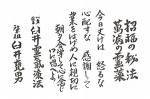 招福の秘法
萬病の霊薬
今日丈けは 怒るな
心配すな 感謝して
業をはげめ 人に親切に
朝夕合掌して心に念じ
口に唱へよ
臼井靈氣療法
肇祖 臼井甕男